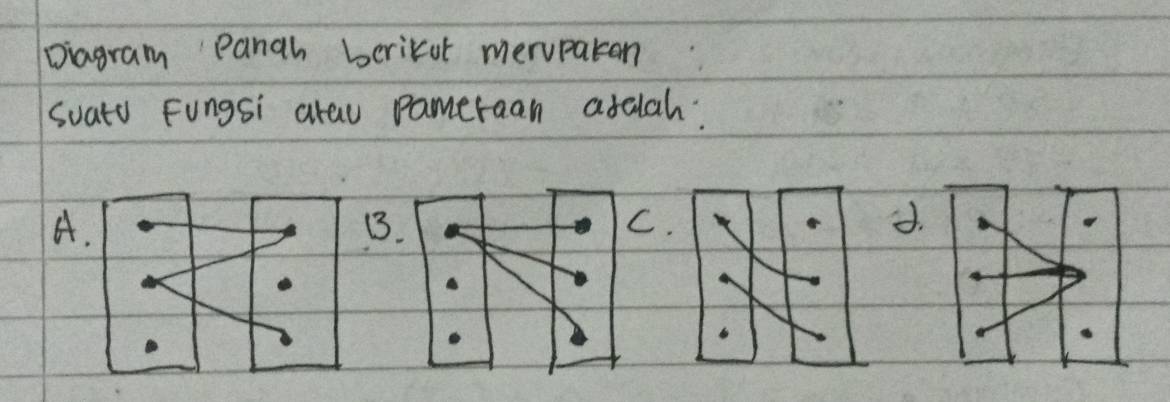 Diagram Panah berikut merupakan
Suatu Fungsi atau Pametaan adalah:
A. B. C. d.